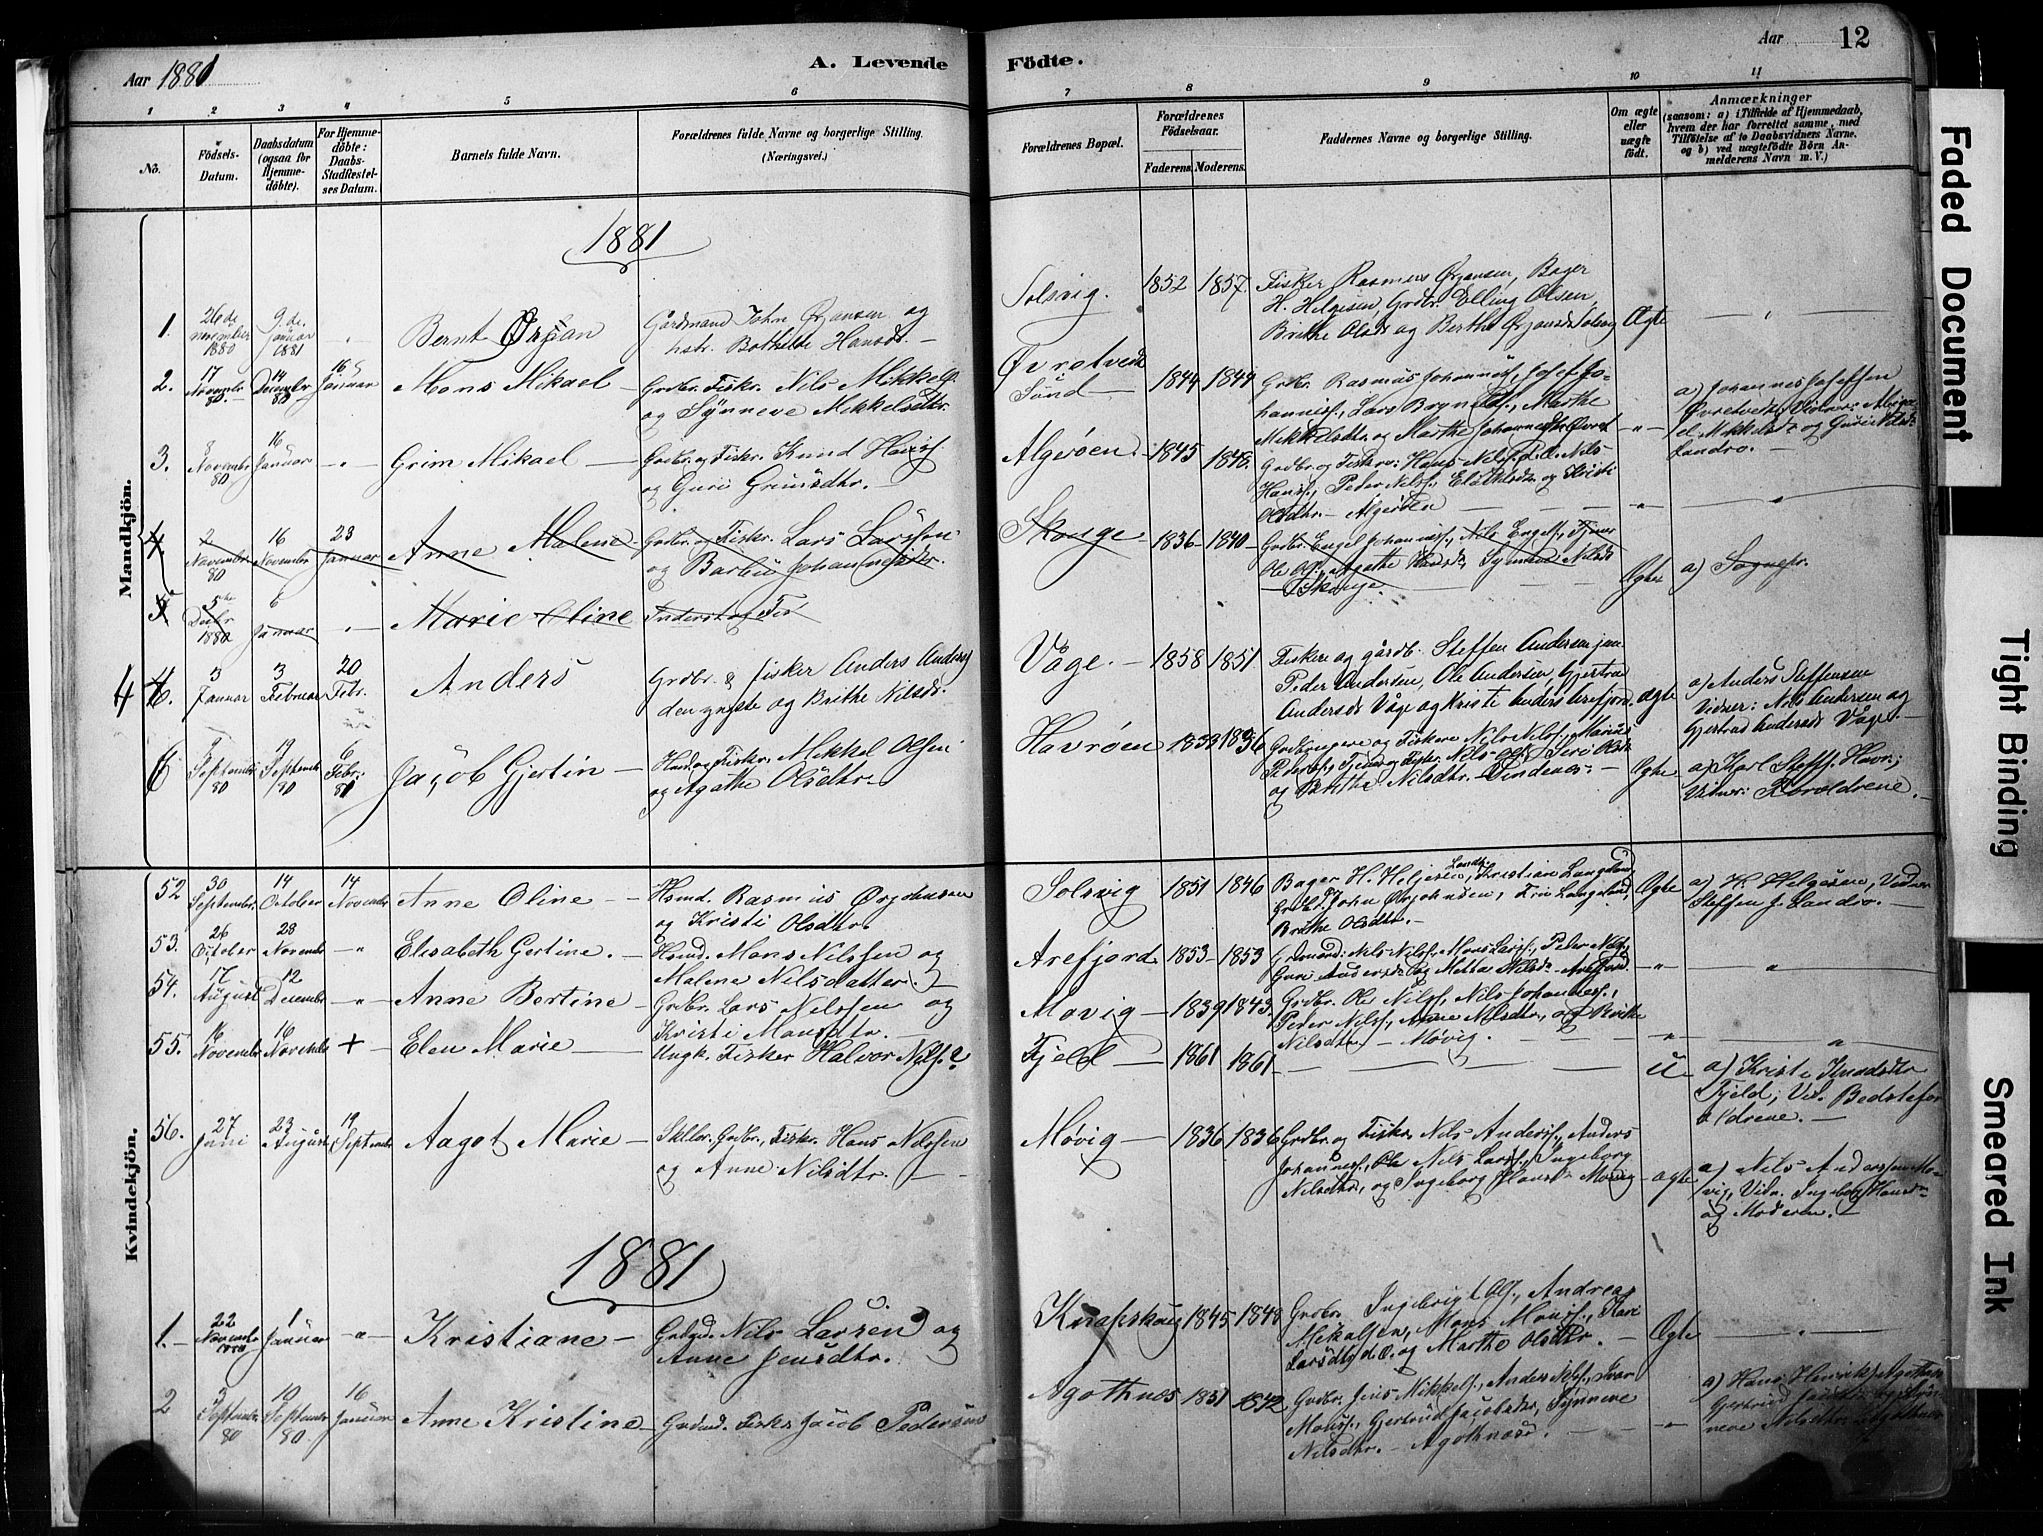 Aar 1881
A. Levende
Födte.
Aar
12
1
2
3
4
5
6
7
8
9
10
11
No.
Födsels-
Datum.
Daabsdatum
(ogsaa for
Hjemme-
döbte).
For Hjemme-
döbte:
Daabs-
Stadfæstel-
ses Datum.
Barnets fulde Navn.
Forældrenes fulde Navne og borgerlige Stilling.
(Næringsvei.)
Forældrenes Bopæl.
Forældrenes
Födselsaar.
Faderens.
Moderens.
Faddernes Navne og borgerlige Stilling.
Om ægte
eller
uægte
födt.
Anmærkninger
(saasom: a) i Tilfælde af Hjemmedaab,
hvem der har forrettet samme, med
Tilföielse af to Daabsvidners Navne.
og b) ved uægtefödte Börn An-
melderens Navn m. V.)
Mandkjön.
1881
1.
26de
november
1880
9.de
januar
1881
Bernt Ørjan
Gårdmand John Ørjansen og
hstr. Bothilde Hansdr. —
Solsvig.
1852
1857
Fisker Rasmus Ørjansen, Bager
H. Helgesen, Grdbr. Elling Olsen,
Brithe Olsdr og Berthe Ørjansdr Solsvig
Ægte
2.
17
Novembr
80.
14
Decembr
80
16
Januar
Mons Mikael
Grdbr. Fiskr. Nils Mikkels.
og Synneve Mikkelsdtr.
Øvretvedt
Sund
1844
1849
Grdbr. Rasmus Johanness., Josef Jo-
hanness., Lars Bryn, Marthe
Mikkelsdtr. og Marthe Johannesdtr Øvret
a) Johannes Joseffsen
Øvretvedt; Vidner:
Mikkelsdr og Guri Nilsdr
Landro. —
3.
Novembr
80
16
Januar
Grim Mikael
Grdbr. og Fiskr. Knud Hanss.
og Guri Grimsdtr. —
Algerøen
1845
1848.
Grdbr. og Fiskere: Hans Nilss. d.e. Nils
Hanss., Peder Nilss., og Kristi
Olsdtr. — Algerøen
4
2
Novembr
80
16
Novembr
23
Januar
Anne Malene
Grdbr. og Fiskr. Lars Larsson
og Barbu Johannesdtr.
Skouge
1836
1840
Grdbr. Engel Johanness., Nils Engels.,
Ole Ols., Agathe Hansdr, Nilsdr
— Skouge.
Ægte
a) Sognepr.
5
5te
Decbr
1880
6
Januar
Marie Oline
Inderst og Fis
4
3
Januar
3
Februar
20
Febr.
Anders
Grdbr. & fisker Anders Anders
den yngste og Brithe Nilsdr.
Våge.
1858
1851
Fiskere og gårdb. Steffen Andersen
Peder Andersen, Ole Andersen, Gjertru
Andersdr Våge og Kristi Andersdr Arefjord
ægte
a) Anders Steffensen
Vidner: Nils Andersen og
Gjertrud Andersdr Våge. —
6
9
Septembr
80
9
Septembr
80
6
Febr.
81
Jacob Gjertin
Mikkel Olsen
og Agathe Olsdtr.
Havrøen
1836
Grdbrugere og Fiskere Nils Nilss., Marius
Peders., Nils Ols., Siri Olsdr
og Brithe Nilsdtr. —
Ægte
a) Karl Steffs. Havn;
Vidner: Foreldrene. —
Kvindekjön.
52
30
Septembr.
14
October
14
Novembr
Anne Oline
Hsmd. Rasmus Ørjohnsen
og Kristi Olsdtr.
Solsvig
1851
1846
Bager H. Helgesen, Landh. Kristian Langeland,
Grdbr. John Ørjohnsen, Langeland,
Brithe Olsdtr. —
Ægte
a) H. Helgesen, Vidner
Steffen J. Landro. —
53.
26
October
28
Novembr
Elisabeth Gertine.
Hsmd. Mons Nilssen og
Malene Nilsdatter. —
Arefjord.
1853
1853
Grdmænd: Nils Nilss., Mons Larss., Peder Nilss.,
Guri Andersdr og Metta Nilsdr Arefjord.
54.
17
August
12
Decembr
Anne Bertine
Grdbr. Lars Nilssen og
Kristi Monsdtr.
Møvig
1839
1843
Grdbr. Ole Nilss., Nils Johanness.,
Peder Nilss., Anne Nilsdtr, og Brithe
Nilsdtr — Møvig.
55.
16
Novembr
16
Novembr
+
Elen Marie
Ungk. Fisker Halvor Nilss. ?
Fjeld
1861
1861
U
a) Kristi Knudsdtr
Fjeld; Vid. Bedstefor
ældrene. —
56.
27
Juni
23
August
19
Septembr
Aagot Marie
Grdbr. Fiskr. Hans Nilssen
og Anne Nilsdtr.
Møvig
1836
1836
Grdbr. og Fiskr. Nils Anderss., Anders
Johanness., Ole Nils Larss., Ingeborg
Nilsdtr., og Ingeborg Hansdr Møvig
ægte
a) Nils Anderssen Mø-
vig, Vidn. Ingeborg Hansdr
og Moderen. —
1881
1.
22
Novembr
1880
1
Januar
Kristiane
Grdbr. Nils Larsen og
Anne Jensdtr.
Knapskog
1845
1848
Grdbr. Ingebrigt Ols., Andreas
Mikalsen, Mons Monss., Kari
Larsdtr d.e. og Marthe Olsdtr. —
Ægte
2
3
Septembr
80
19
Septembr
80.
16
Januar
Anne Kristine
Grdmd. Fiskr Jacob Pedersen
Agothnæs
1851
1842
Grdbr. Jens Mikkels., Anders Nilss., Ivar
Monss., Gjertrud Jacobsdtr, Synneve
Nilsdtr. — Agothnæs.
a) Hans Henriks. Agothnæs
Gjertrud og Syn-
neve Nilsdtr. Agothnæs
Faded Document
Tight Binding
Smeared Ink